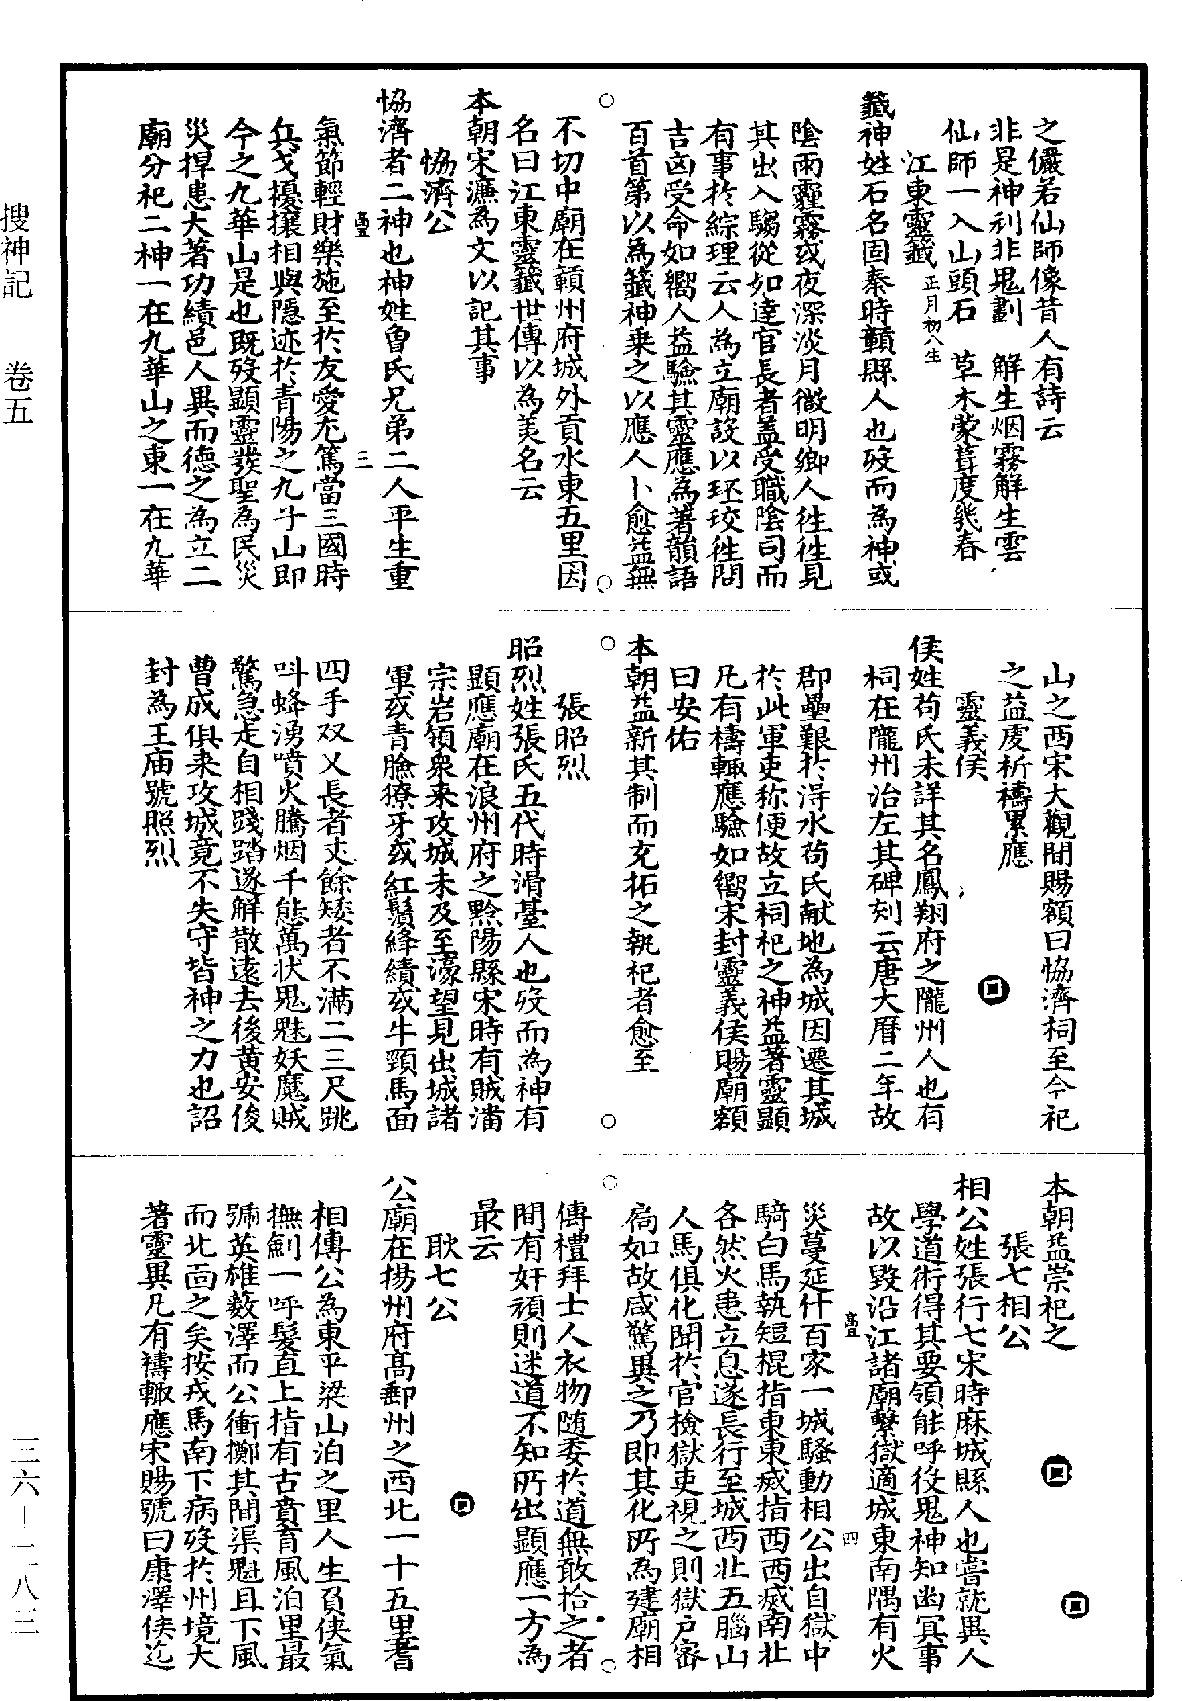 搜神記　卷五
之儼若仙師像昔人有詩云
非是神利非鬼劃　解生烟霧解生雲
仙師一入山頭石　草木蒙茸度幾春
江東靈籤　正月初八生
籤神姓石名固秦時贛縣人也歿而為神或
陰雨霾霧或夜深淡月微明鄉人徃徃見
其出入騶從如達官長者蓋受職陰司而
有事於綜理云人為立廟設以珓珓徃問
吉凶受命如嚮人益驗其靈應為著韻語
百首第以為籤神乗之以應人卜愈益無
不切中廟在贛州府城外貢水東五里因
名曰江東靈籤世傳以為美名云
本朝宋濂為文以記其事
協濟公
協濟者二神也神姓魯氏兄弟二人平生重
三
氣節輕財樂施至於友愛尤篤當三國時
兵戈擾攘相與隱迹於青陽之九子山即
今之九華山是也既歿顯靈發聖為民災
災捍患大著功績邑人異而德之為立二
廟分祀二神一在九華山之東一在九華
山之西宋大觀間賜額曰協濟祠至今祀
之益虔祈禱累應
靈義侯
侯姓苟氏未詳其名鳳翔府之隴州人也有
祠在隴州治左其碑刻云唐大曆二年故
郡壘艱於淂水苟氏献地為城因遷其城
於此軍吏称便故立祠祀之神益著靈顯
凡有禱輒應驗如嚮宋封靈義侯賜廟額
曰安佑
本朝益新其制而充拓之執祀者愈至
張昭烈
昭烈姓張氏五代時滑臺人也歿而為神有
顯應廟在浪州府之黔陽縣宋時有賊潘
宗岩領衆来攻城未及至濠望見出城諸
軍或青臉獠牙或紅鬚絳績或牛頸馬面
四手双乂長者丈餘矮者不滿二三尺跳
呌蜂湧噴火騰烟千態萬状鬼魅妖魔賊
驚急走自相踐踏遂解散遠去後黄安俊
曹成俱来攻城竟不失守皆神之力也詔
封為王庙號照烈
本朝益崇祀之
張七相公
相公姓張行七宋時麻城縣人也嘗就異人
學道術得其要領能呼役鬼神知幽冥事
故以毀沿江諸廟繫獄適城東南隅有火
四
災蔓延什百家一城騷動相公出自獄中
騎白馬執短棍指東東滅指西西滅南北
各然火患立息遂長行至城西北五腦山
人馬俱化聞於官檢獄吏視之則獄户宻
扃如故咸驚異之乃即其化所為建廟相
傳禮拜士人衣物随委於道無敢拾之者
間有奸頑則迷道不知所出顯應一方為
最云
耿七公
公廟在揚州府髙郵州之西北一十五里耆
相傳公為東平梁山泊之里人生負侠氣
撫劍一呼髮直上指有古賁育風泊里最
號英雄藪澤而公衝擲其間渠魁且下風
而北靣之矣按戎馬南下病歿於州境大
著靈異凡有禱輒應宋賜號曰康澤侯迄
三六—二八三